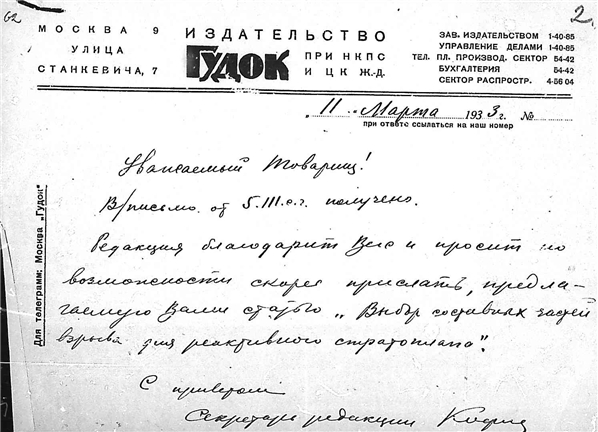 62
2.
МОСКВА 9
УЛИЦА
СТАНКЕВИЧА, 7
ИЗДАТЕЛЬСТВО
ГУДОК
ПРИ НКПС
И ЦК Ж.-Д.
ЗАВ. ИЗДАТЕЛЬСТВОМ 1-40-85
УПРАВЛЕНИЕ ДЕЛАМИ 1-40-85
ТЕЛ. ПЛ. ПРОИЗВОД. СЕКТОР 54-42
БУХГАЛТЕРИЯ 54-42
СЕКТОР РАСПРОСТР. 4-56 04
„11" Марта 1933 г. №
при ответе ссылаться на наш номер
Для телеграмм: Москва „Гудок"
Уважаемый Товарищ!
В/письмо от 5.III.с.г. получено.
Редакция благодарит Вас и просит по
возможности скорее прислать, предла-
гаемую Вами статью „Выбор составных частей
взрыва для реактивного стратоплана".
С приветом
Секретарь редакции